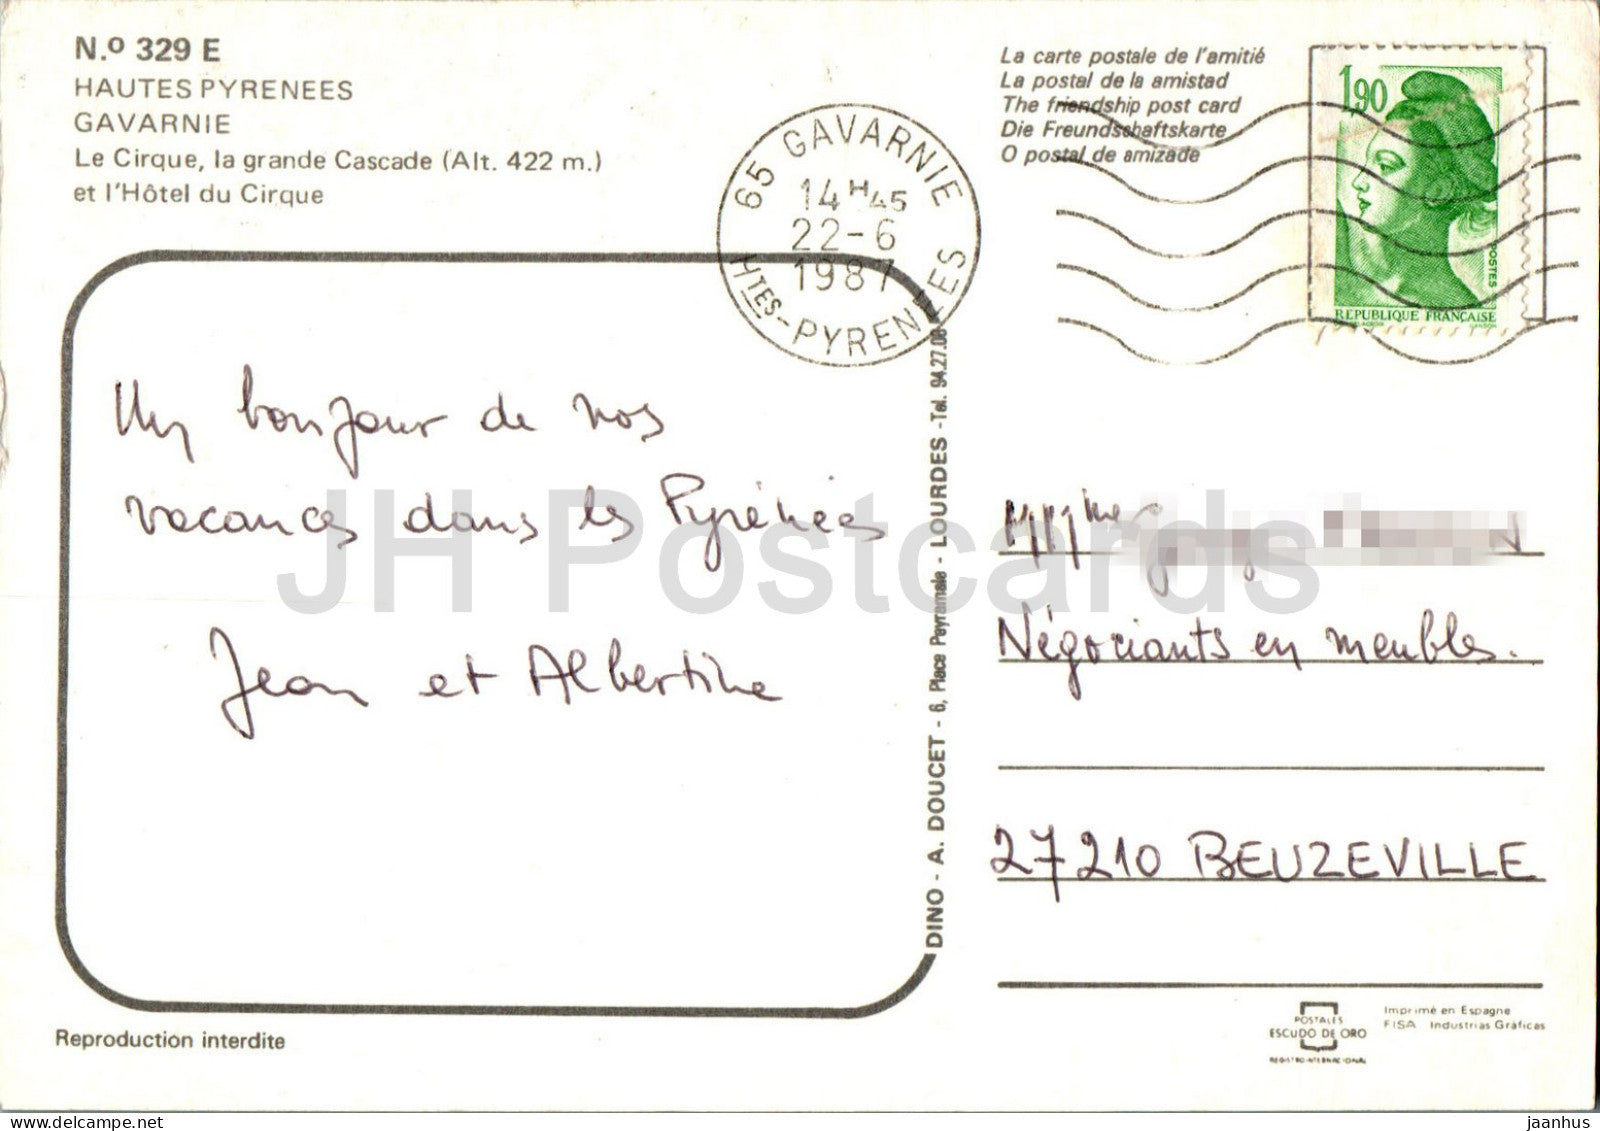 N.º 329 E
HAUTES PYRENEES
GAVARNIE
Le Cirque, la grande Cascade (Alt. 422 m.)
et l'Hôtel du Cirque
La carte postale de l'amitié
La postal de la amistad
The friendship post card
Die Freundschaftskarte
O postal de amizade
65 GAVARNIE
14 H 45
22-6
1987
HTES-PYRENEES
1,90
POSTES
REPUBLIQUE FRANÇAISE
Un bonjour de nos
vacances dans les Pyrénées
Jean et Albertine
JH Postcards
DINO - A. DOUCET - 6, Place Peyramale - LOURDES - Tel. 94.27.08
Négociants en meubles.
27210 BEUZEVILLE
Reproduction interdite
POSTALES
ESCUDO DE ORO
REGISTRO INTERNACIONAL
Imprimé en Espagne
FISA Industrias Gráficas
jaanhus